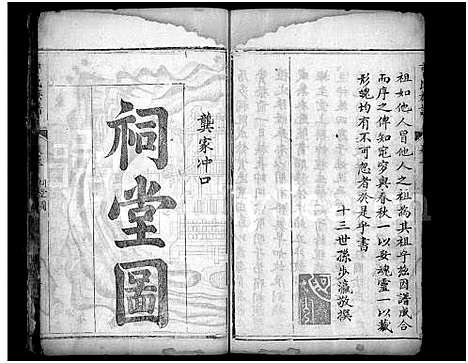 祖如他人冒他人之祖為其祖乎茲因譜成合
而序之俾知窀穸與春秋一以妥魂靈一以藏
形魄均有不可忽者於是乎書
十三世孫步瀛敬撰
龔家冲口
祠堂圖